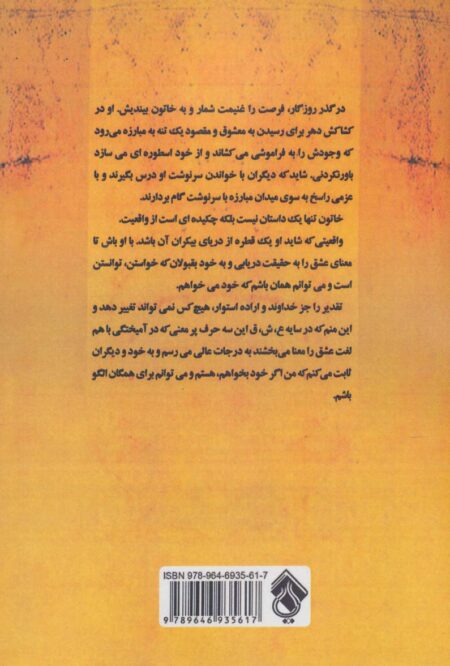 در گذر روزگار، فرصت را غنیمت شمار و به خاتون بیندیش. او در
کشاکش دهر برای رسیدن به معشوق و مقصود یک تنه به مبارزه می‌رود
که وجودش را به فراموشی می‌کشاند و از خود اسطوره ای می سازد
باورنکردنی. شاید که دیگران با خواندن سرنوشت او درس بگیرند و با
عزمی راسخ به سوی میدان مبارزه با سرنوشت گام بردارند.
خاتون تنها یک داستان نیست بلکه چکیده ای است از واقعیت.
واقعیتی که شاید او یک قطره از دریای بیکران آن باشد. با او باش تا
معنای عشق را به حقیقت دریابی و به خود بقبولان که خواستن، توانستن
است و می توانم همان باشم که خود می خواهم.
تقدیر را جز خداوند و اراده استوار، هیچ کس نمی تواند تغییر دهد و
این منم که در سایه ع، ش، ق این سه حرف پر معنی که در آمیختگی با هم
لغت عشق را معنا می‌بخشند به درجات عالی می رسم و به خود و دیگران
ثابت می‌کنم که من اگر خود بخواهم، هستم و می توانم برای همگان الگو
باشم.
ISBN 978-964-6935-61-7
9 789646 935617